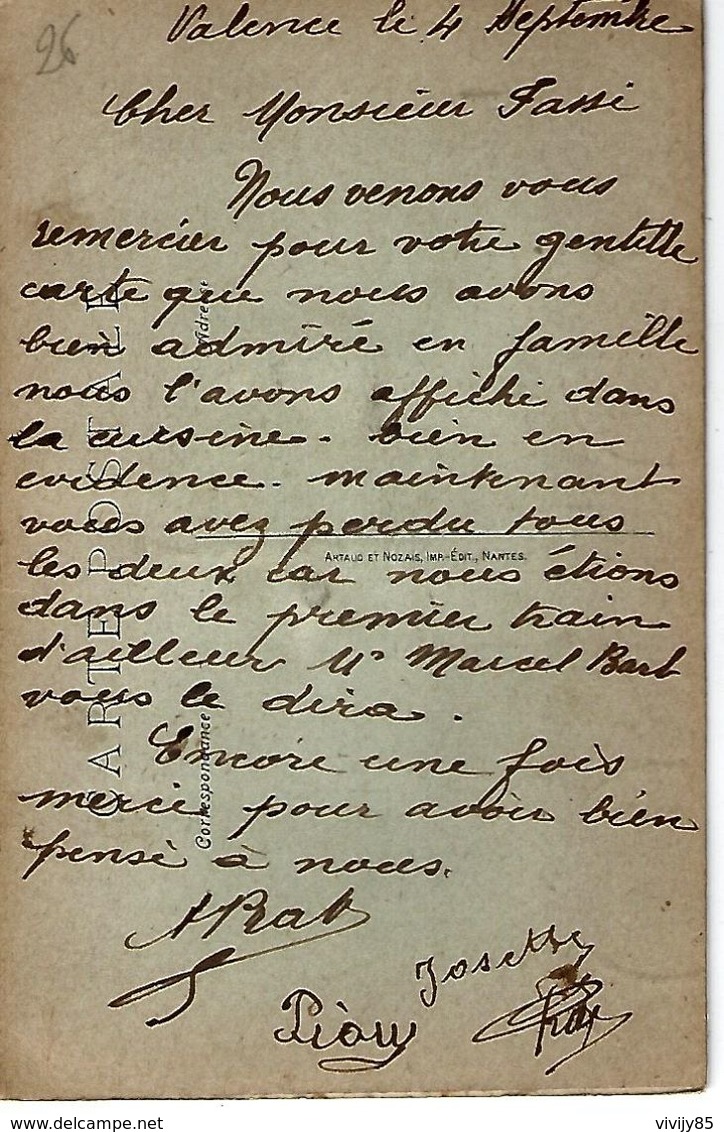 26
Valence le 4 Septembre
Cher Monsieur Fassi
Nous venons vous
remercier pour votre gentille
carte que nous avons
bien admiré en famille
nous l'avons affiché dans
la cuisine. bien en
evidence. maintenant
vous avez perdu tous
les deux car nous étions
dans le premier train
d'ailleur Mr Marcel Bart
vous le dira.
Encore une fois
merci pour avoir bien
pensé à nous.
Josette
CARTE POSTALE
Correspondance
Adresse
ARTAUD ET NOZAIS, IMP.-ÉDIT., NANTES.
© Delcampe
vivijy85